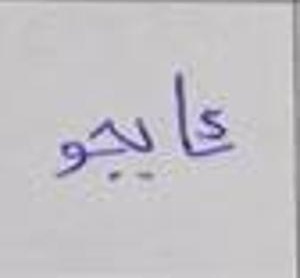 كايجو